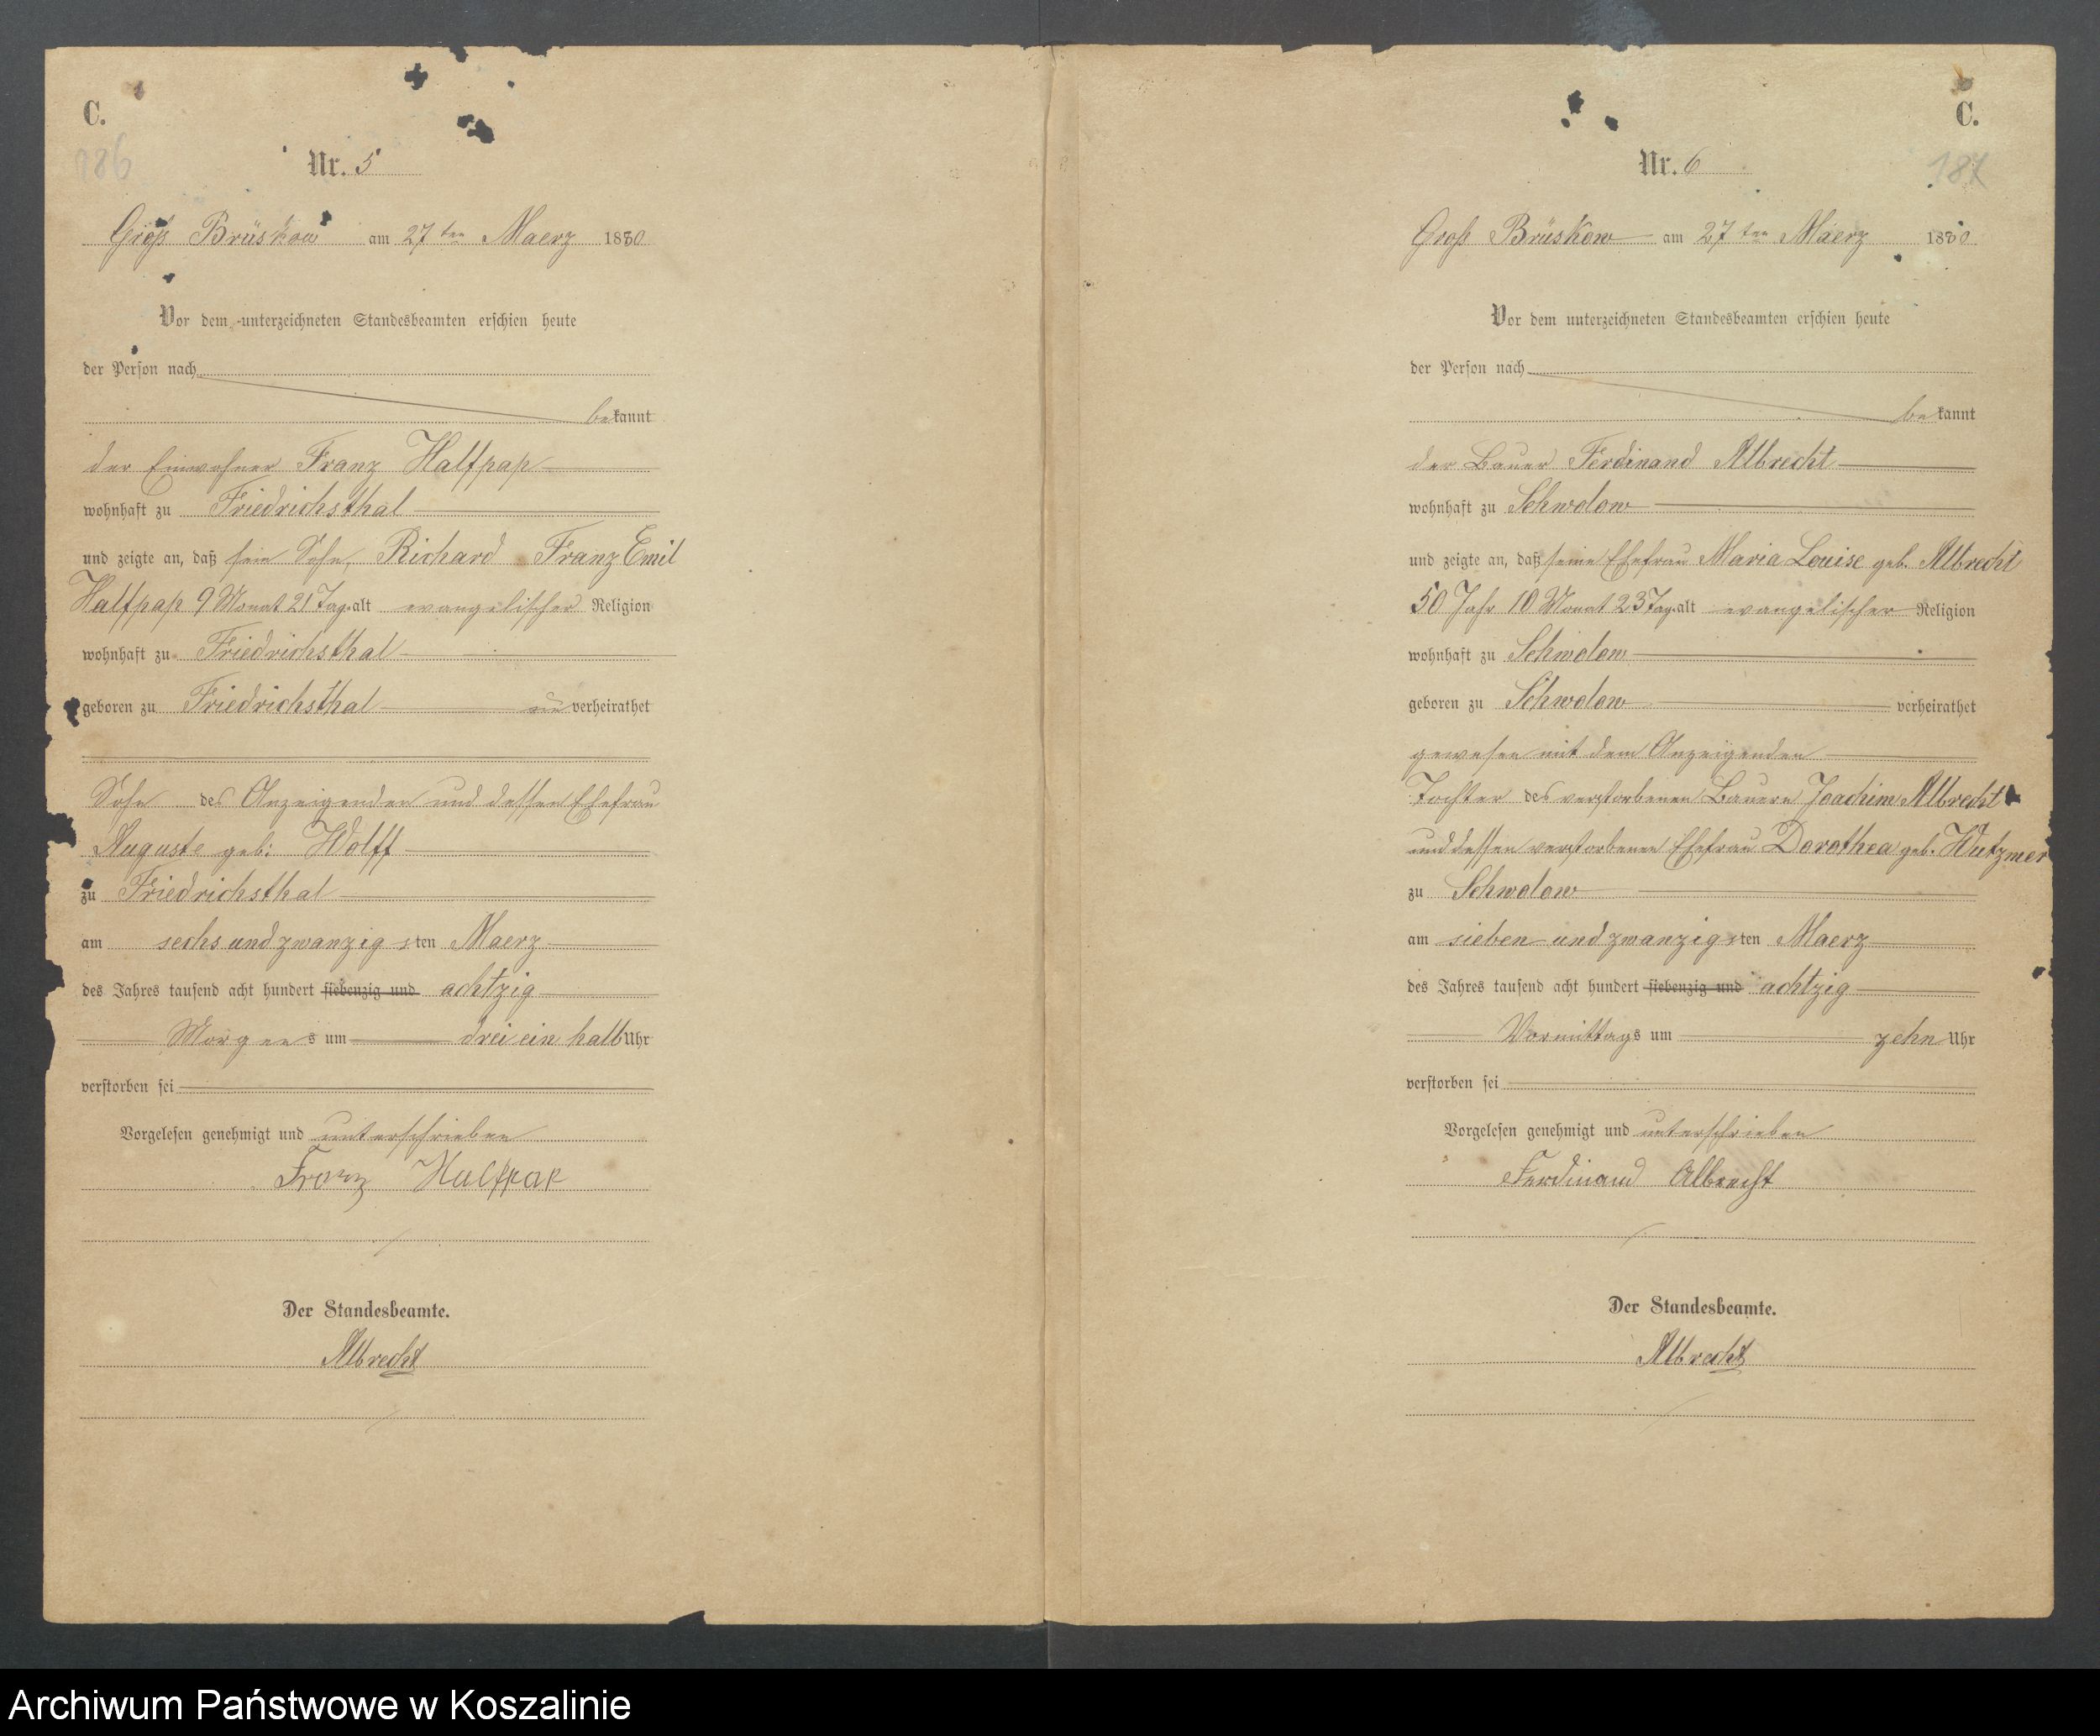 C.
186
Nr. 5
Groß Brüskow am 27ten Maerz 1880
Vor dem unterzeichneten Standesbeamten erschien heute
der Person nach
bekannt
der Einwohner Franz Halfpap
wohnhaft zu Friedrichsthal
und zeigte an, daß sein Sohn, Richard Franz Emil
Halfpap 9 Monat 21 Tag alt evangelischer Religion
wohnhaft zu Friedrichsthal
geboren zu Friedrichsthal verheirathet
Sohn des Anzeigenden und dessen Ehefrau
Auguste geb: Wolff
zu Friedrichsthal
am sechs und zwanzigsten Maerz
des Jahres tausend acht hundert siebenzig und achtzig
Morgens um drei ein halb Uhr
verstorben sei
Vorgelesen genehmigt und unterschrieben
Franz Halfpap
Der Standesbeamte.
Albrecht
C.
187
Nr. 6
Groß Brüskow am 27ten Maerz 1880
Vor dem unterzeichneten Standesbeamten erschien heute
der Person nach
bekannt
der Bauer Ferdinand Albrecht
wohnhaft zu Schwolow
und zeigte an, daß seine Ehefrau Maria Louise geb. Albrecht
50 Jahr 10 Monat 23 Tag alt evangelischer Religion
wohnhaft zu Schwolow
geboren zu Schwolow verheirathet
gewesen mit dem Anzeigenden
Tochter des verstorbenen Bauern Joachim Albrecht
und dessen verstorbenen Ehefrau Dorothea geb. Wutzmer
zu Schwolow
am sieben und zwanzigsten Maerz
des Jahres tausend acht hundert siebenzig und achtzig
Vormittags um zehn Uhr
verstorben sei
Vorgelesen genehmigt und unterschrieben
Ferdinand Albrecht
Der Standesbeamte.
Albrecht
Archiwum Państwowe w Koszalinie